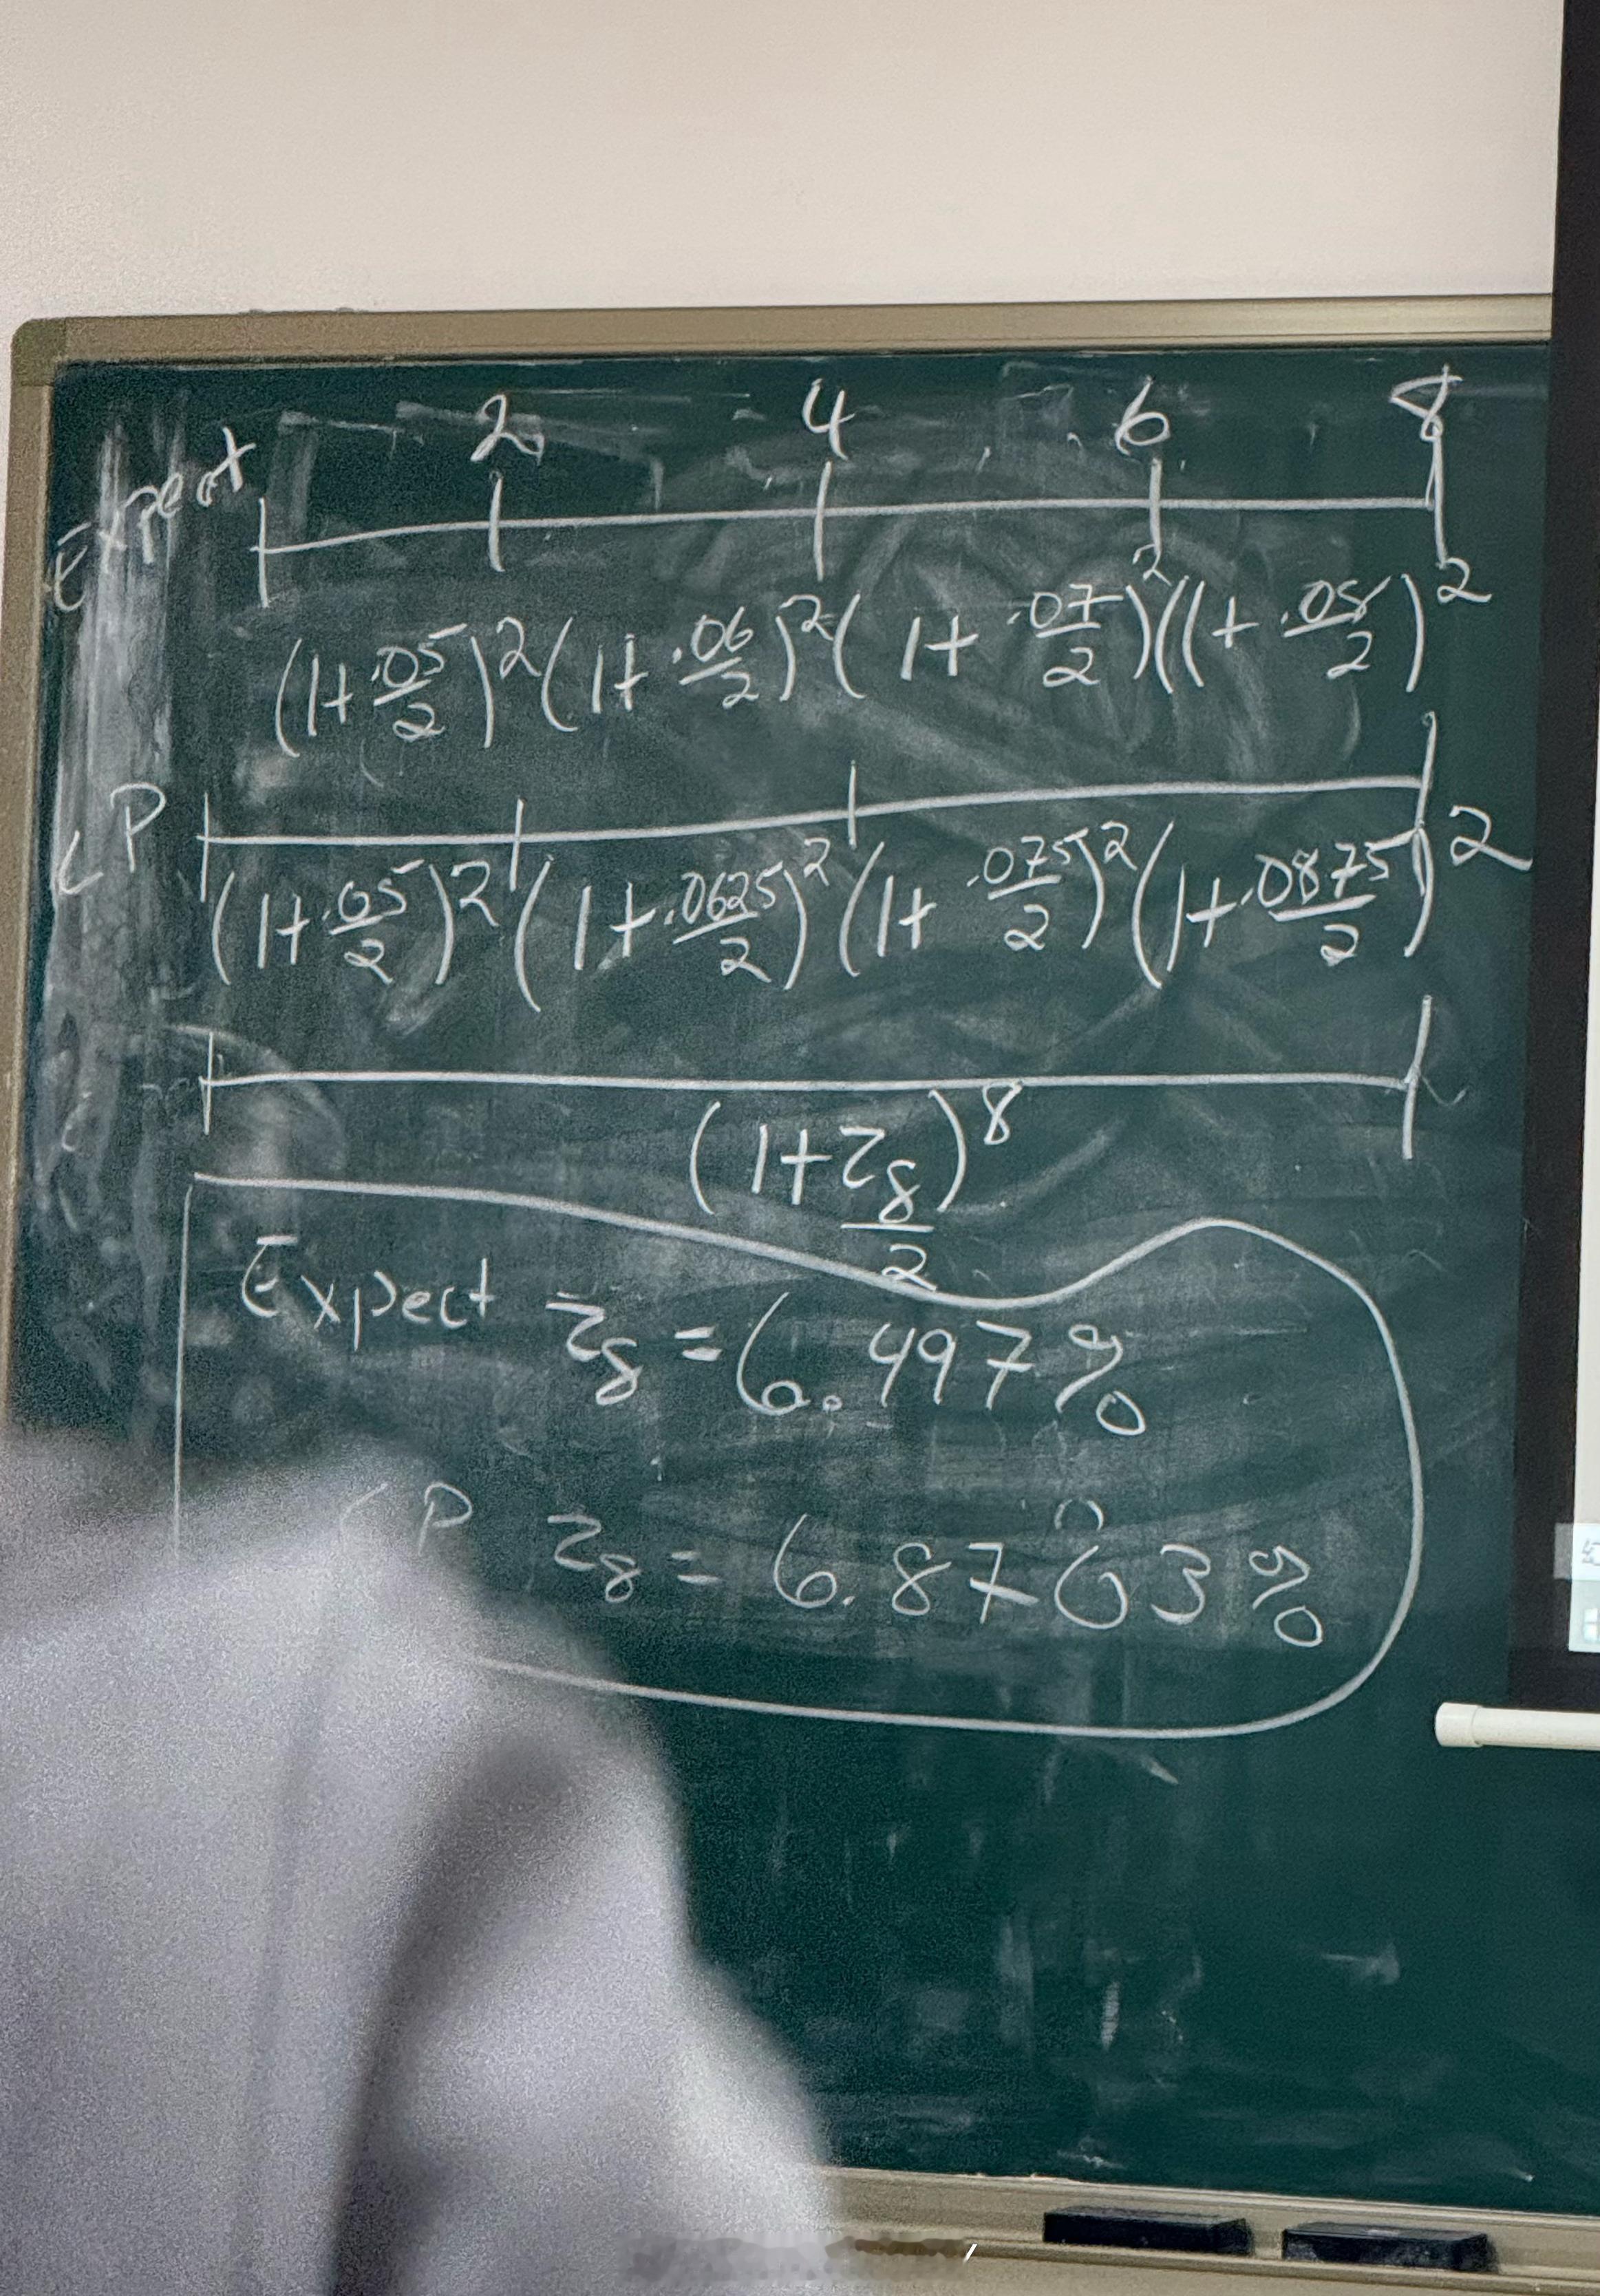 2 4 6 8
Expect
(1+.05/2)²(1+.06/2)²(1+.07/2)²(1+.08/2)²
LP
(1+.05/2)²(1+.0625/2)²(1+.075/2)²(1+.0875/2)²
(1+z₈/2)⁸
Expect z₈=6.497%
LP z₈=6.8703%